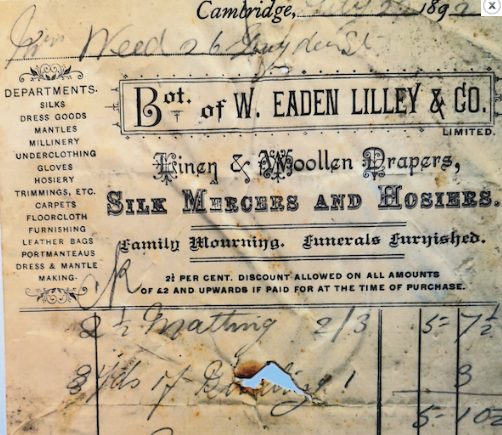 Cambridge, July 2 1892
Mrs Weed 26
DEPARTMENTS.
SILKS
DRESS GOODS
MANTLES
MILLINERY
UNDERCLOTHING
GLOVES
HOSIERY
TRIMMINGS, ETC.
CARPETS
FLOORCLOTH
FURNISHING
LEATHER BAGS
PORTMANTEAUS
DRESS & MANTLE
MAKING.
Bot. of W. EADEN LILLEY & CO.
LIMITED.
Linen & Woollen Drapers,
SILK MERCERS AND HOSIERS.
Family Mourning. Funerals Furnished.
2½ PER CENT. DISCOUNT ALLOWED ON ALL AMOUNTS
OF £2 AND UPWARDS IF PAID FOR AT THE TIME OF PURCHASE.
2½ Matting 2/3 5 - 7½
3 yds of 1 3
5 - 10½